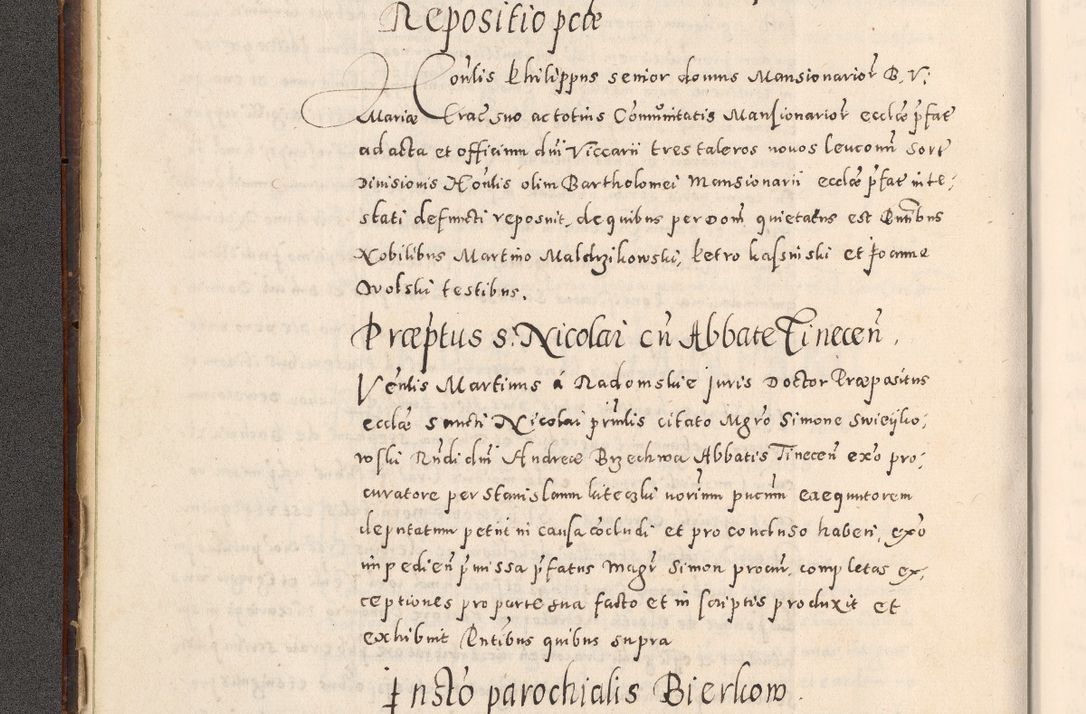 Repositio pcte
Honlis Philippus senior domus Mansionarior B. V.
Mariæ Crac suo ac totius Communitatis Mansionarior eccliæ pfat
ad acta et officium dni Viccarii tres taleros novos leuconn sort
Divisionis Honlis olim Bartholomei Mansionarii eccliæ pfat inte,
stati defuncti reposuit, de quibus per Dom quietatus est Pntibus
Nobilibus Martino Maldrzikowski, Petro kassinski et Joanne
Wolski testibus.
Præptus s: Nicolai cn Abbate Tinecen.
Venlis Martinus á Radomskie juris Doctor Præpositus
eccliæ Sancti Nicolai prnlis citato Mgro Simone Swieijko,
wski Rndi dni Andreæ Brzechwa Abbatis Tinecen exo pro,
curatore per Stanislaum luteczki norium pucum exequutorem
deputatum petiit in causa cocludi et pro concluso haberi, exo
impedien pmissa pfatus Magr Simon procur. completas ex,
ceptiones pro parte sua facto et in scriptis produxit et
exhibuit Pntibus quibus supra
Insto parochialis Bierkow.